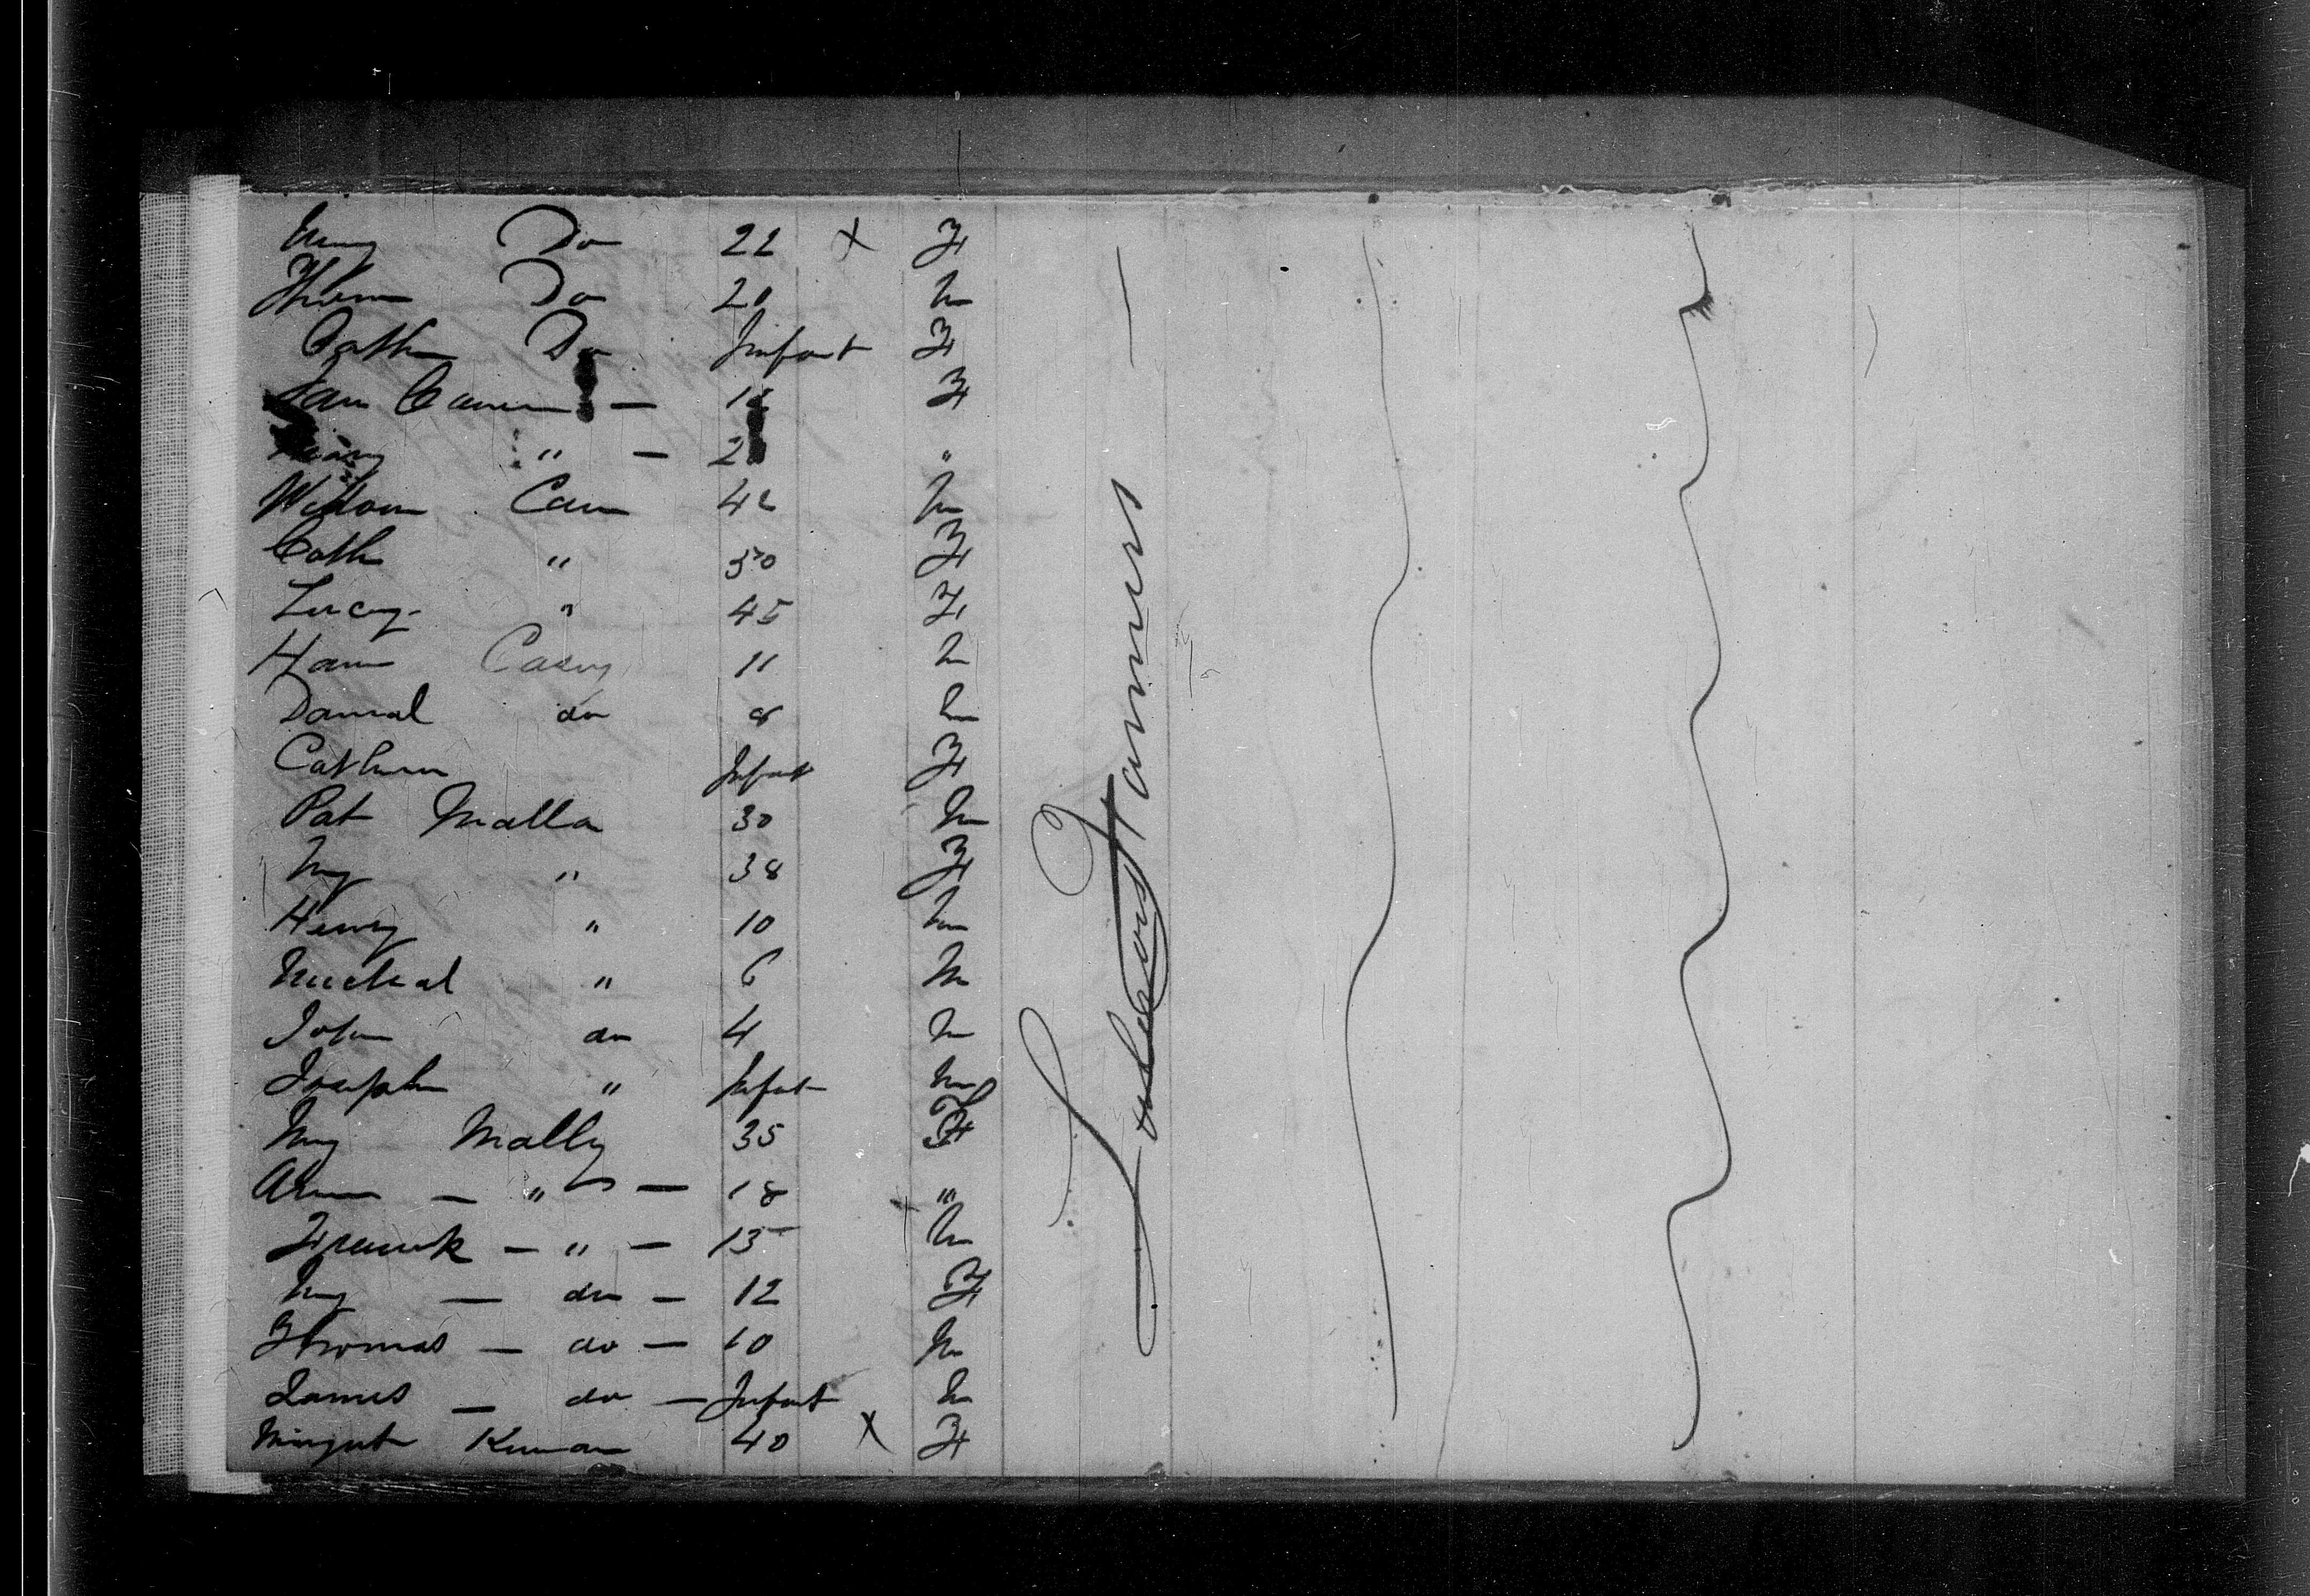 Mary Do 22 X F
Thom Do 20 M
Cath Do Infant F
F
Mary " — "
William Cain 42 M
Cath " 30 F
Lucy " 45 F
Hann Casey 11 M
Danial do 8 M
Cathern Infant F
Pat Malla 30 M
My " 38 F
Henry " 10 M
Micheal " 6 M
John do 4 M
Joseph " Infant M
My Mally 35 F
Ann — " — 18 "
Franck — " — 13 M
My — do — 12 F
Thomas — do — 10 M
James — do — Infant M
Margret 40 X F
Labours & Farmers —